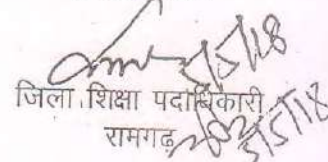 5/5/18
जिला शिक्षा पदाधिकारी
रामगढ़
5/5/18